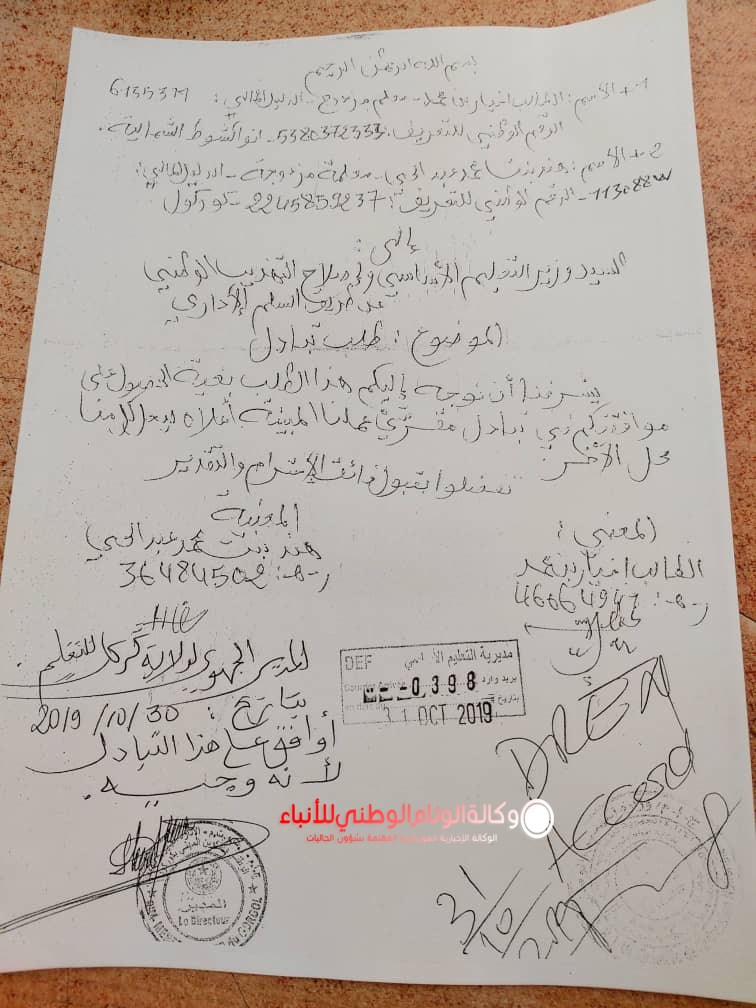 بسم الله الرحمن الرحيم
1- الاسم: الطالب اخيار بن محمد - معلم مزدوج - الدليل المالي:
الرقم الوطني للتعريف: - انواكشوط الشمالية.
2- الاسم: هند بنت محمد عبد الحي - معلمة مزدوجة - الدليل المالي:
113088W - الرقم الوطني للتعريف: 2245859237 - كوركول
إلى:
السيد وزير التعليم الأساسي وإصلاح التهذيب الوطني
عن طريق السلم الإداري
الموضوع: طلب تبادل
يشرفنا أن نوجه إليكم هذا الطلب بغية الحصول على
موافقتكم في تبادل مقري عملنا المبينة أعلاه ليحل كل منا
محل الآخر.
تفضلوا بقبول فائق الاحترام والتقدير
المعني:
الطالب اخيار بن محمد
ر-ه: 46064947
المعنية
هند بنت محمد عبد الحي
ر-ه: 36484502
المدير الجهوي لولاية كركل للتعليم
بتاريخ: 30/10/2019
أوافق على هذا التبادل
لأنه وجيه.
DEF مديرية التعليم الأساسي
بريد وارد 0398
بتاريخ 31 OCT 2019
DREN
Accord
31/10/2019
وكالة الوئام الوطني للأنباء
المدير
Le Directeur
DU GORGOL